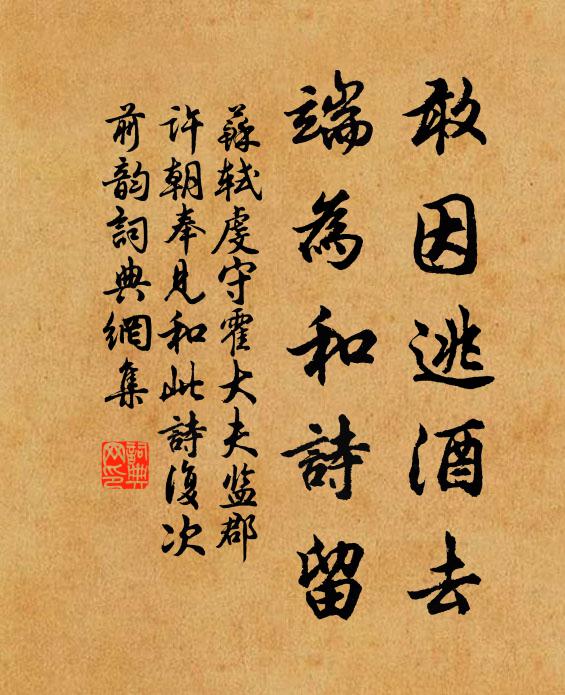 敢因逃酒去
端為和詩留
蘇軾虔守霍大夫监郡
许朝奉见和此詩復次
前韵詞典網集
詞典网印